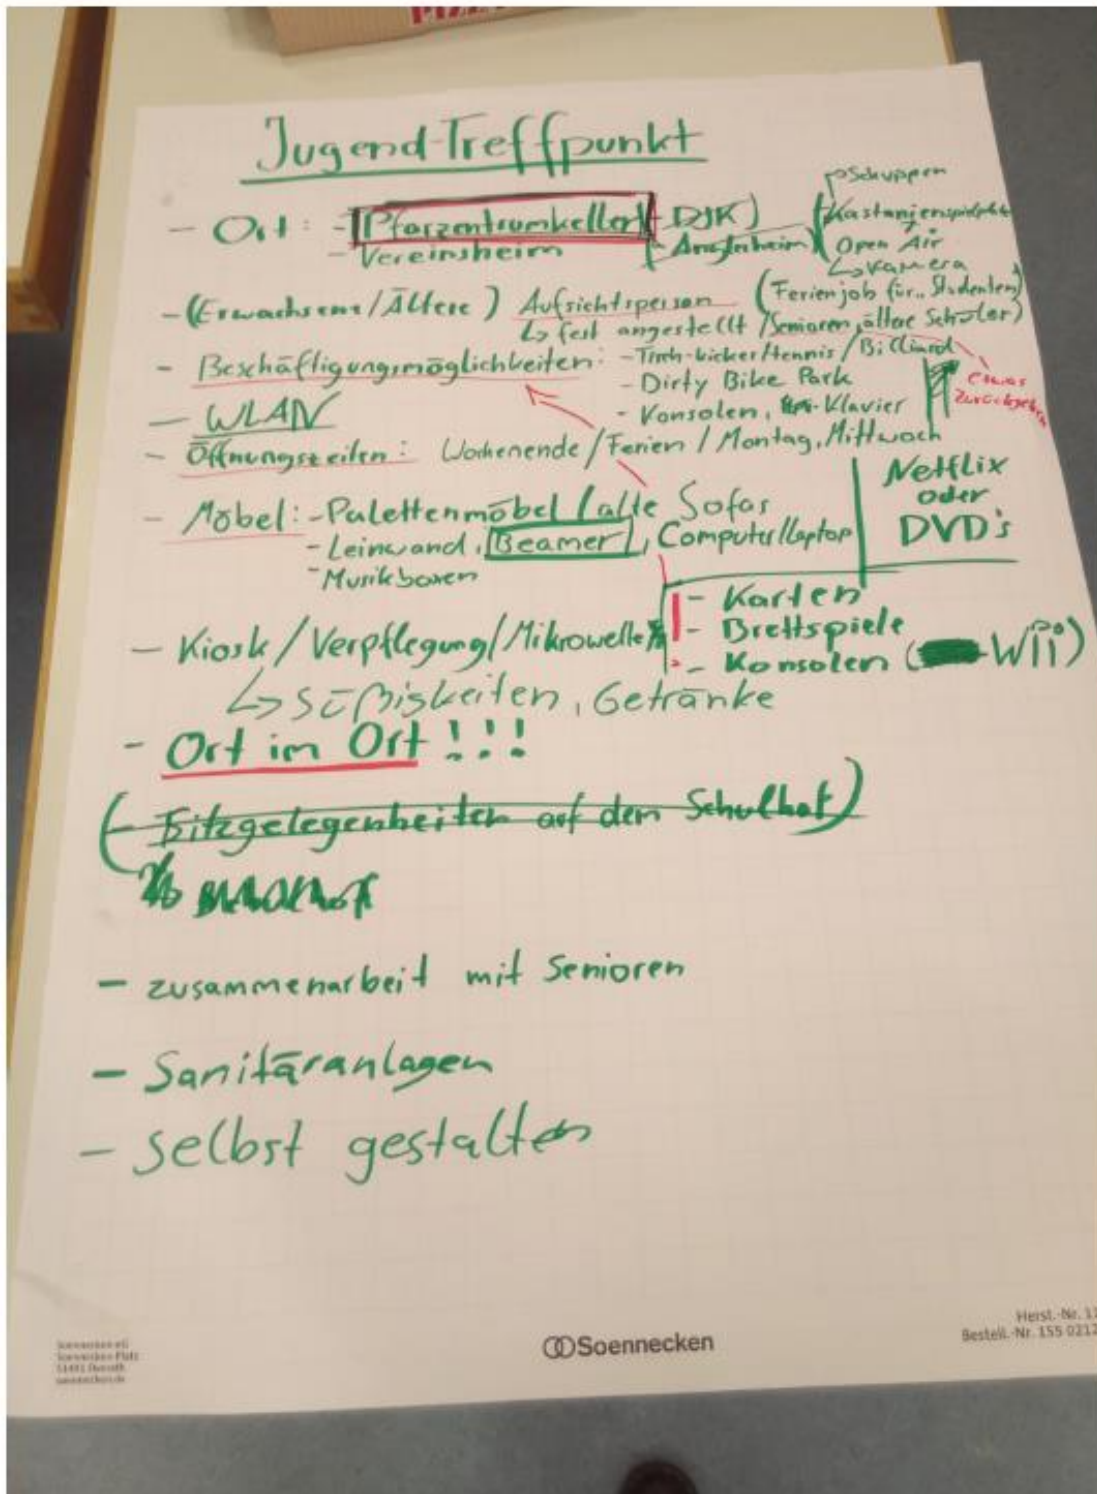 Jugend-Treffpunkt
Schuppen
- Ort: - Pfarzentrumkeller (- DJK)
- Vereinsheim
- Anglerheim
Open Air
↳ Kamera
- (Erwachsene/Ältere) Aufsichtsperson (Ferienjob für Studenten)
↳ fest angestellt / Senioren, ältere Schüler)
- Beschäftigungsmöglichkeiten: - Tisch-kicker/tennis / Billiard
- Dirty Bike Park
etwas
zurückgeben
- WLAN
- Konsolen, Klavier
- Öffnungszeiten: Wochenende / Ferien / Montag, Mittwoch
- Möbel: - Palettenmöbel / alte Sofas
- Leinwand, Beamer, Computer/Laptop
- Musikboxen
Netflix
oder
DVD's
- Karten
- Brettspiele
- Konsolen (Wii)
- Kiosk / Verpflegung / Mikrowelle
↳ Süßigkeiten, Getränke
- Ort im Ort !!!
(- Sitzgelegenheiten auf dem Schulhof)
- zusammenarbeit mit Senioren
- Sanitäranlagen
- Selbst gestalten
Soennecken eG
Soennecken-Platz
51491 Overath
soennecken.de
Soennecken
Herst.-Nr. 1
Bestell.-Nr. 155 0212